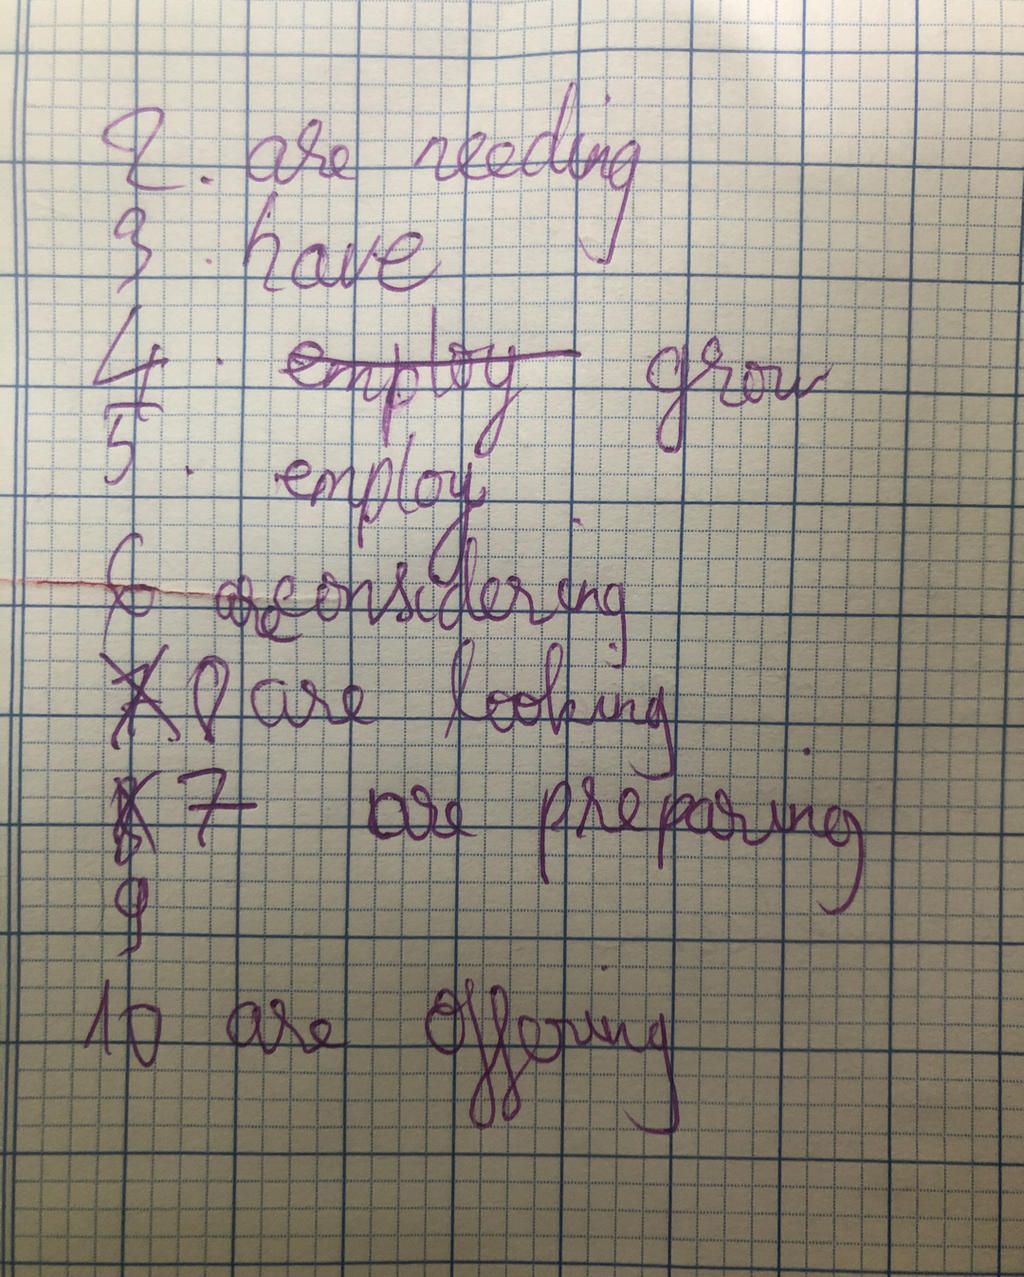 2. are needing
3. have
4. employ grow
5. employ
6 are considering
7 8 are looking
8 7 are preparing
9
10 are offering